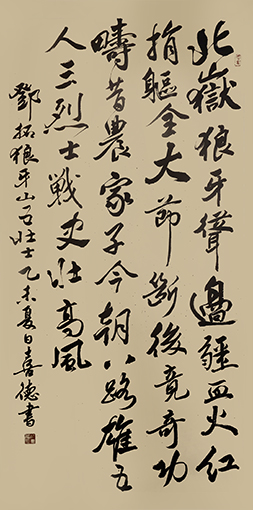 北嶽狼牙聳邊疆血火紅
捐軀全大節斷後竟奇功
疇昔農家子今朝八路雄五
人三烈士戰史壯高風
鄧拓狼牙山五壯士乙未夏日喜德書